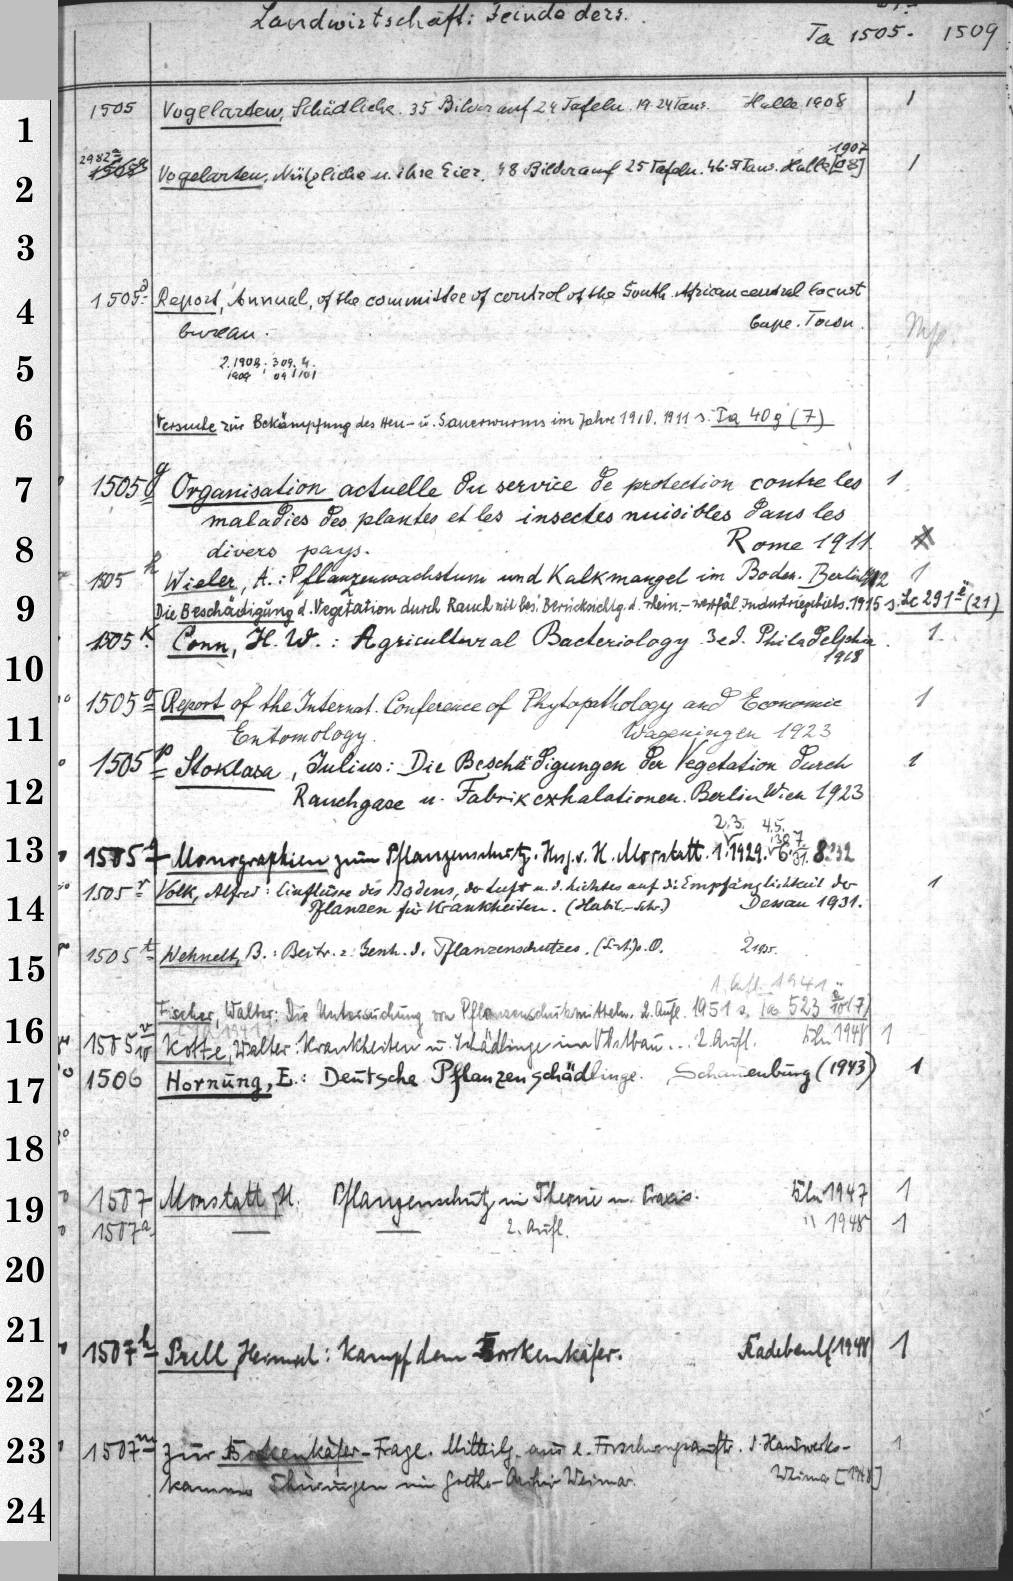 Landwirtschaft: Feinde ders.
Ta 1505- 1509
1505 Vogelarten, Schädliche. 35 Bilder auf 24 Tafeln. 19.-24 Taus. Halle 1908 1
1907
2982a Vogelarten, Nützliche u. ihre Eier. 48 Bilder auf 25 Tafeln. 46.- Taus. Halle [08] 1
1505d Report, Annual, of the committee of control of the South African central locust
bureau. Cape Town.
2.1908; 3 09. 4.
1909 09 1/01
Versuche zur Bekämpfung des Heu- u. Sauerwurms im Jahre 1910. 1911 s. Ta 40g (7)
1505g Organisation actuelle du service de protection contre les 1
maladies des plantes et les insectes nuisibles dans les
divers pays. Rome 1911.
1505h Wieler, A.: Pflanzenwachstum und Kalkmangel im Boden. Berlin 1912 1
Die Beschädigung d. Vegetation durch Rauch mit bes. Berücksichtg. d. rhein.-westfäl. Industriegebiets. 1915 s. Lc 291 (21)
1505k Conn, H. W.: Agricultural Bacteriology 3 ed. Philadelphia 1.
1918
1505o Report of the Internat. Conference of Phytopathology and Economic 1
Entomology. Wageningen 1923
1505p Stoklasa, Julius: Die Beschädigungen der Vegetation durch 1
Rauchgase u. Fabrikexhalationen. Berlin Wien 1923
2.3. 4.5. 7
1505q Monographien zum Pflanzenschutz. Hsg. v. H. Morstatt. 1. 1929. 6. 31. 8. 32
1505r Volk, Alfred: Einflüsse des Bodens, der Luft u. d. Lichtes auf die Empfänglichkeit der 1
Pflanzen für Krankheiten. (Habil.-Schr.) Dessau 1931.
1505t Wehnelt, B.: Beitr. z. Gesch. d. Pflanzenschutzes. 1935.
1. Aufl. 1941
Fischer, Walter: Die Untersuchung von Pflanzenschutzmitteln. 2. Aufl. 1951 s. Ta 523 (7)
1505v Kotte, Walter: Krankheiten u. Schädlinge im Obstbau... 2. Aufl. Bln 1948 1
1506 Hornung, E.: Deutsche Pflanzenschädlinge. Schauenburg (1943) 1
1507 Morstatt, H. Pflanzenschutz in Theorie u. Praxis. Bln 1947 1
1507a — — 2. Aufl. " 1948 1
1507h Prell, Heinrich: Kampf dem Borkenkäfer. Radebeul (1948) 1
1507m Zur Borkenkäfer-Frage. Mitteilg. aus e. d. Handwerks- 1
kammer Thüringen im Goethe-Archiv Weimar. Weimar [1948]